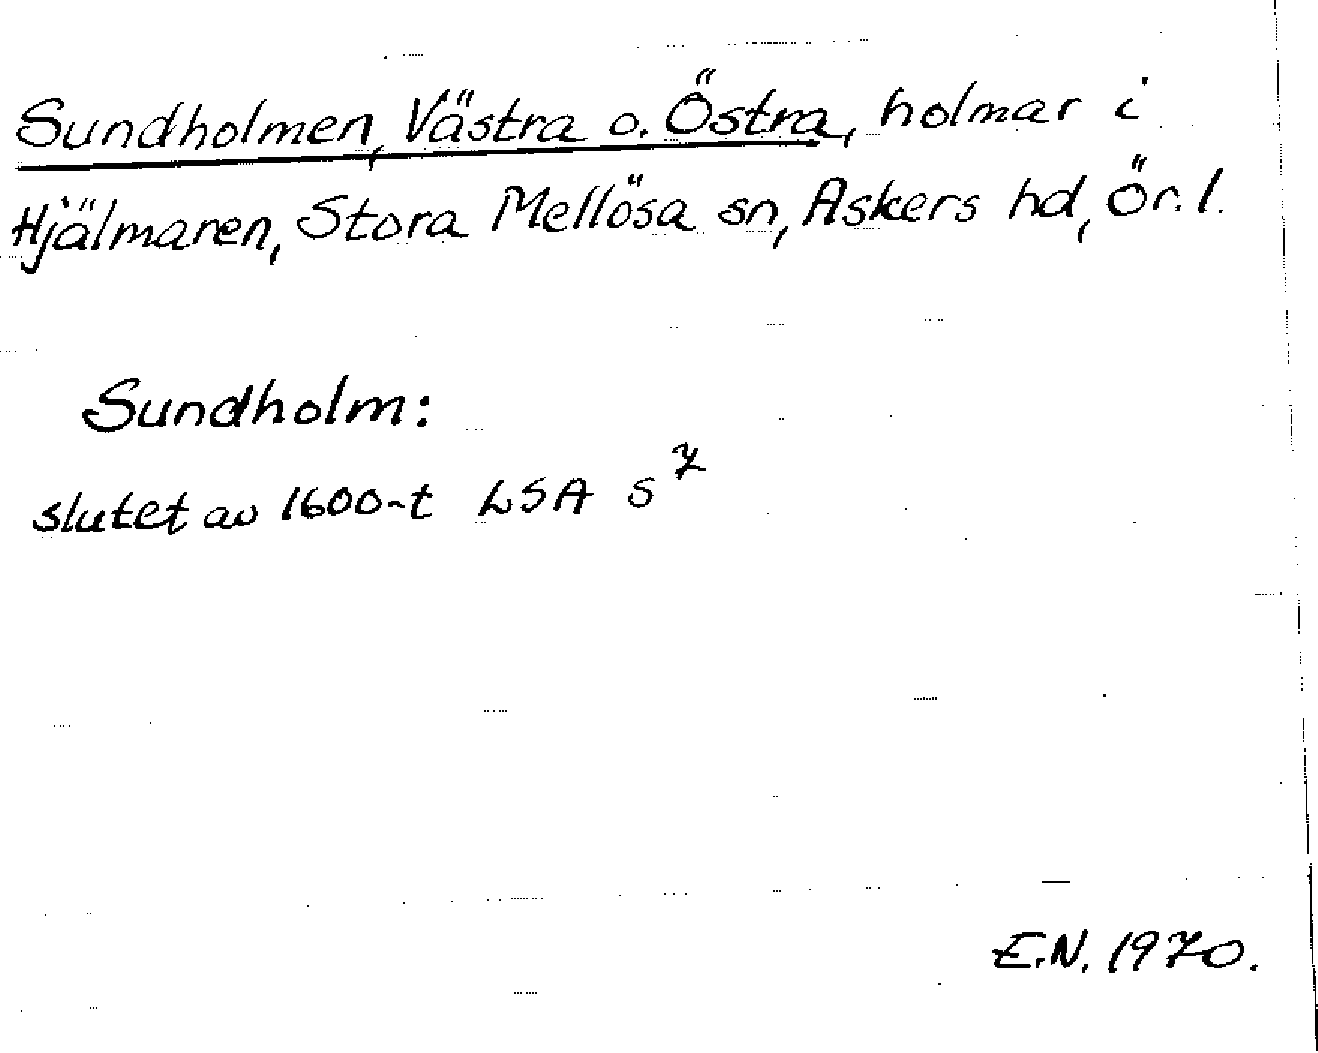 Sundholmen, Västra o. Östra, holmar i
Hjälmaren, Stora Mellösa sn, Askers hd, Ör. l.
Sundholm:
slutet av 1600-t LSA S⁷
E.N. 1970.